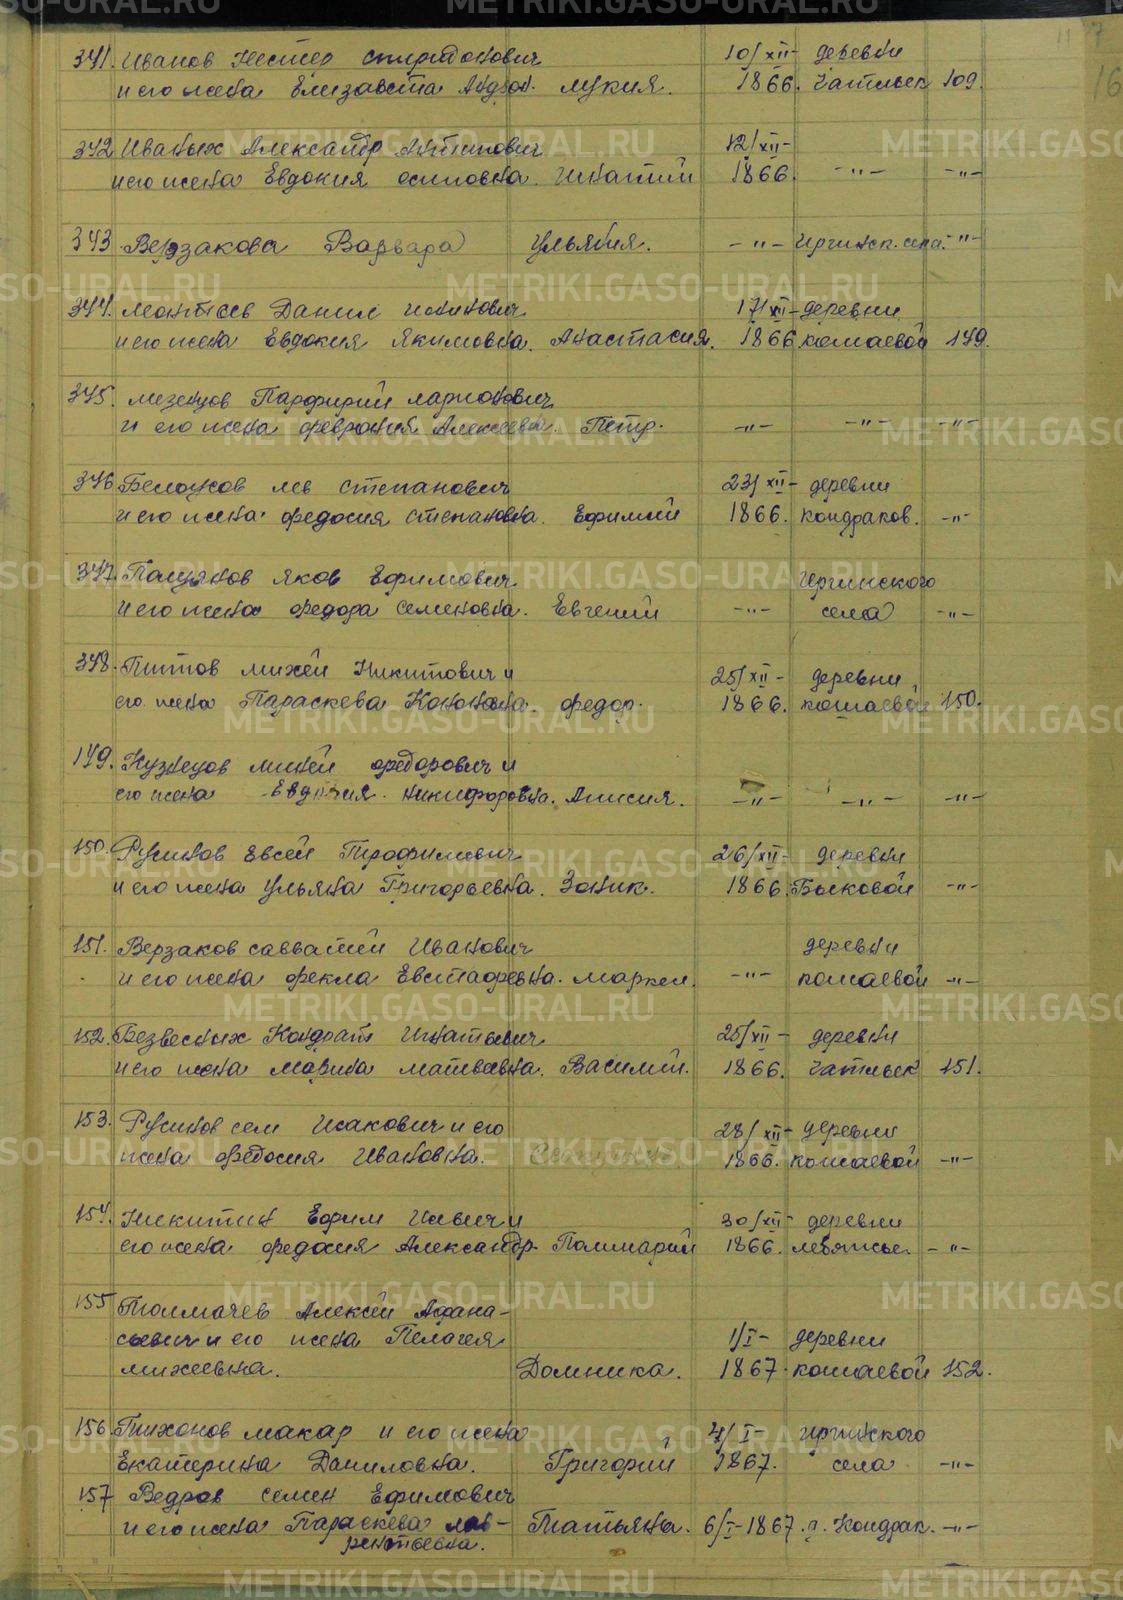 341. Иванов Нестер Спиридонович 10/XII- деревни
и его жена Елизавета Лукия. 1866. Чатлык 109.
342 Иваных Александр Антипович 12/XII-
и его жена Евдокия Осиповна. Игнатий 1866. -"- -"-
343 Верзакова Варвара Ульяния. -"- Иргинск. села. -"-
344. Мантсев Данил Иванович 17/XII- деревни
и его жена Евдокия Якимовна. Анастасия. 1866 кошаевой 149.
345. Мезенцов Парфирий Ларионович
и его жена Феврония Алексеевна. Петр. -"- -"- -"-
346 Белоусов Лев Степанович 23/XII- деревни
и его жена Федосия Степановна. Ефимий 1866. кондраков. -"-
347. Пацянов Яков Ефимович Иргинского
и его жена Федора Семеновна. Евгений -"- села -"-
348. Титов Михей Никитович и 25/XII- деревни
его жена Параскева Кононовна. Федор. 1866. кошаевой 150.
149. Кузнецов Михей Федорович и
его жена Евдокия Никифоровна. Анисия. -"- -"- -"-
150. Русинов Евсей Трофимович 26/XII- деревни
и его жена Ульяна Григорьевна. Заник. 1866. Быковой -"-
151. Верзаков Савватей Иванович деревни
и его жена Фекла Евстафевна. Маркел. -"- кошаевой -"-
152. Безвесных Кондрат Игнатьевич 25/XII- деревни
и его жена Марина Матвевна. Василий. 1866. Чатлык 151.
153. Русинов Сем Исакович и его 28/XII- деревни
жена Федосия Ивановна. 1866. кошаевой -"-
154. Никитин Ефим Иевич и 30/XII- деревни
его жена Федосия Александр. Полинарий 1866. левятье. -"-
155 Толмачев Алексей Афана-
сьевич и его жена Пелагея 1/I- деревни
Михеевна. Домника. 1867. кошаевой 152.
156 Тихонов Макар и его жена 4/I- Иргинского
Екатерина Даниловна. Григорий 1867. села -"-
157 Ведров Семен Ефимович
и его жена Параскева Лав- Татьяна. 6/I-1867. д. Кондрак. -"-
рентьевна.
METRIKI.GASO-URAL.RU